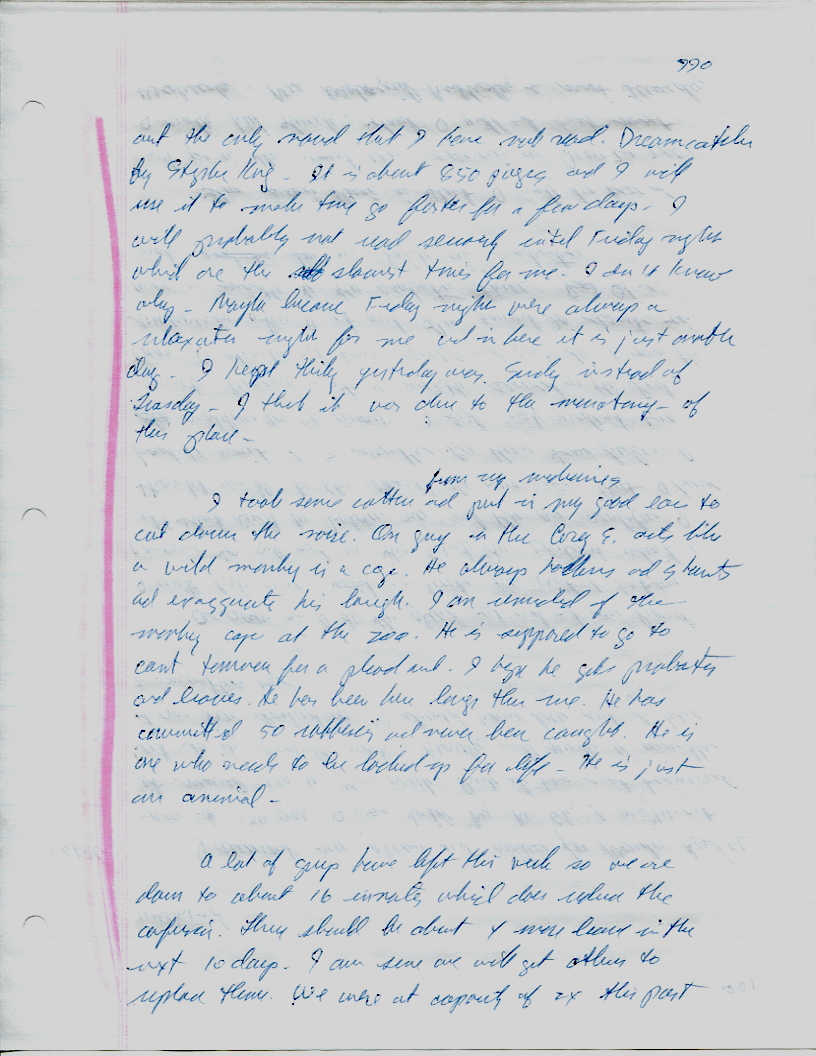 990
out the only novel that I have not read. Dreamcatcher
by Stephe King - It is about 850 pages and I will
use it to make time go faster for a few days - I
will probably not read seriously until Friday night
which are the slowest times for me - I don't know
why - Maybe because Friday night were always a
relaxation night for me and in here it is just another
day - I kept think yesterday was Sunday instead of
Tuesday - I think it was due to the monotony - of
this place -
from my medicines
I took some cotton and put in my good ear to
cut down the noise. One guy in the Corey E. acts like
a wild monkey in a cage. He always hollers and shouts
and exaggerate his laugh. I am reminded of the
monkey cage at the zoo. He is supposed to go to
court tomorrow for a plead out. I hope he gets probation
and leaves. He has been here longer than me. He has
committed 50 robberies and never been caught. He is
one who needs to be locked up for life - He is just
an animal -
A lot of guys have left this week so we are
down to about 16 inmates which does reduce the
confusion. There should be about 4 more leave in the
next 10 days. I am sure we will get others to
replace them. We were at capacity of 24 this past